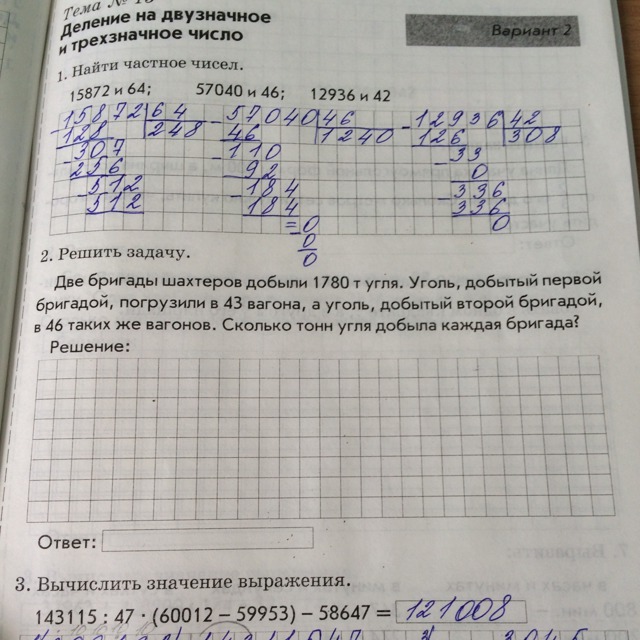 Тема №
Деление на двузначное
и трехзначное число
Вариант 2
1. Найти частное чисел.
15872 и 64; 57040 и 46; 12936 и 42
-15872 | 64 -57040 | 46 -12936 | 42
128 | 248 46 | 1240 126 | 308
-307 -110 -33
256 92 0
-512 -184 -336
512 184 336
=0 0
0
0
2. Решить задачу.
Две бригады шахтеров добыли 1780 т угля. Уголь, добытый первой
бригадой, погрузили в 43 вагона, а уголь, добытый второй бригадой,
в 46 таких же вагонов. Сколько тонн угля добыла каждая бригада?
Решение:
Ответ:
3. Вычислить значение выражения.
143115 : 47 · (60012 – 59953) – 58647 = 121008